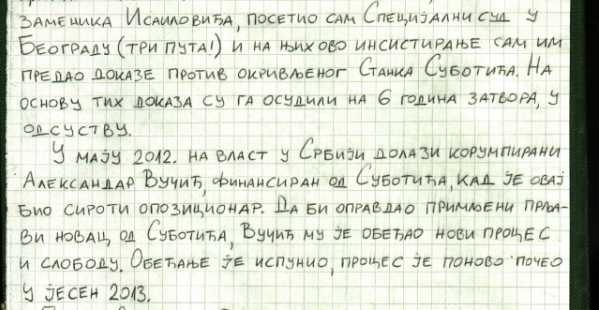 ЗАМЕНИКА ИСАИЛОВИЋА, ПОСЕТИО САМ СПЕЦИЈАЛНИ СУД У
БЕОГРАДУ (ТРИ ПУТА!) И НА ЊИХОВО ИНСИСТИРАЊЕ САМ ИМ
ПРЕДАО ДОКАЗЕ ПРОТИВ ОКРИВЉЕНОГ СТАНКА СУБОТИЋА. НА
ОСНОВУ ТИХ ДОКАЗА СУ ГА ОСУДИЛИ НА 6 ГОДИНА ЗАТВОРА, У
ОДСУСТВУ.
У МАЈУ 2012. НА ВЛАСТ У СРБИЈИ ДОЛАЗИ КОРУМПИРАНИ
АЛЕКСАНДАР ВУЧИЋ, ФИНАНСИРАН ОД СУБОТИЋА, КАД ЈЕ ОВАЈ
БИО СИРОТИ ОПОЗИЦИОНАР. ДА БИ ОПРАВДАО ПРИМЉЕНИ ПРЉА-
ВИ НОВАЦ ОД СУБОТИЋА, ВУЧИЋ МУ ЈЕ ОБЕЋАО НОВИ ПРОЦЕС
И СЛОБОДУ. ОБЕЋАЊЕ ЈЕ ИСПУНИО, ПРОЦЕС ЈЕ ПОНОВО ПОЧЕО
У ЈЕСЕН 2013.